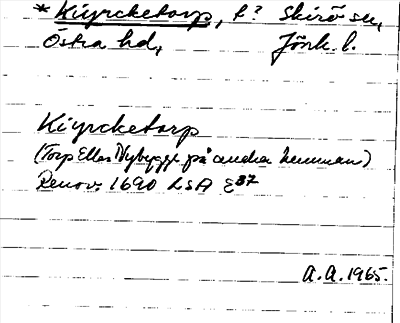 * Kiyrcketorp, t? Skirö sn,
Östra hd, Jönk. l.
Kiyrcketorp
(Torp Eller Nybygge på andra hemman)
Renov. 1690 LSA E37
A.A. 1965.